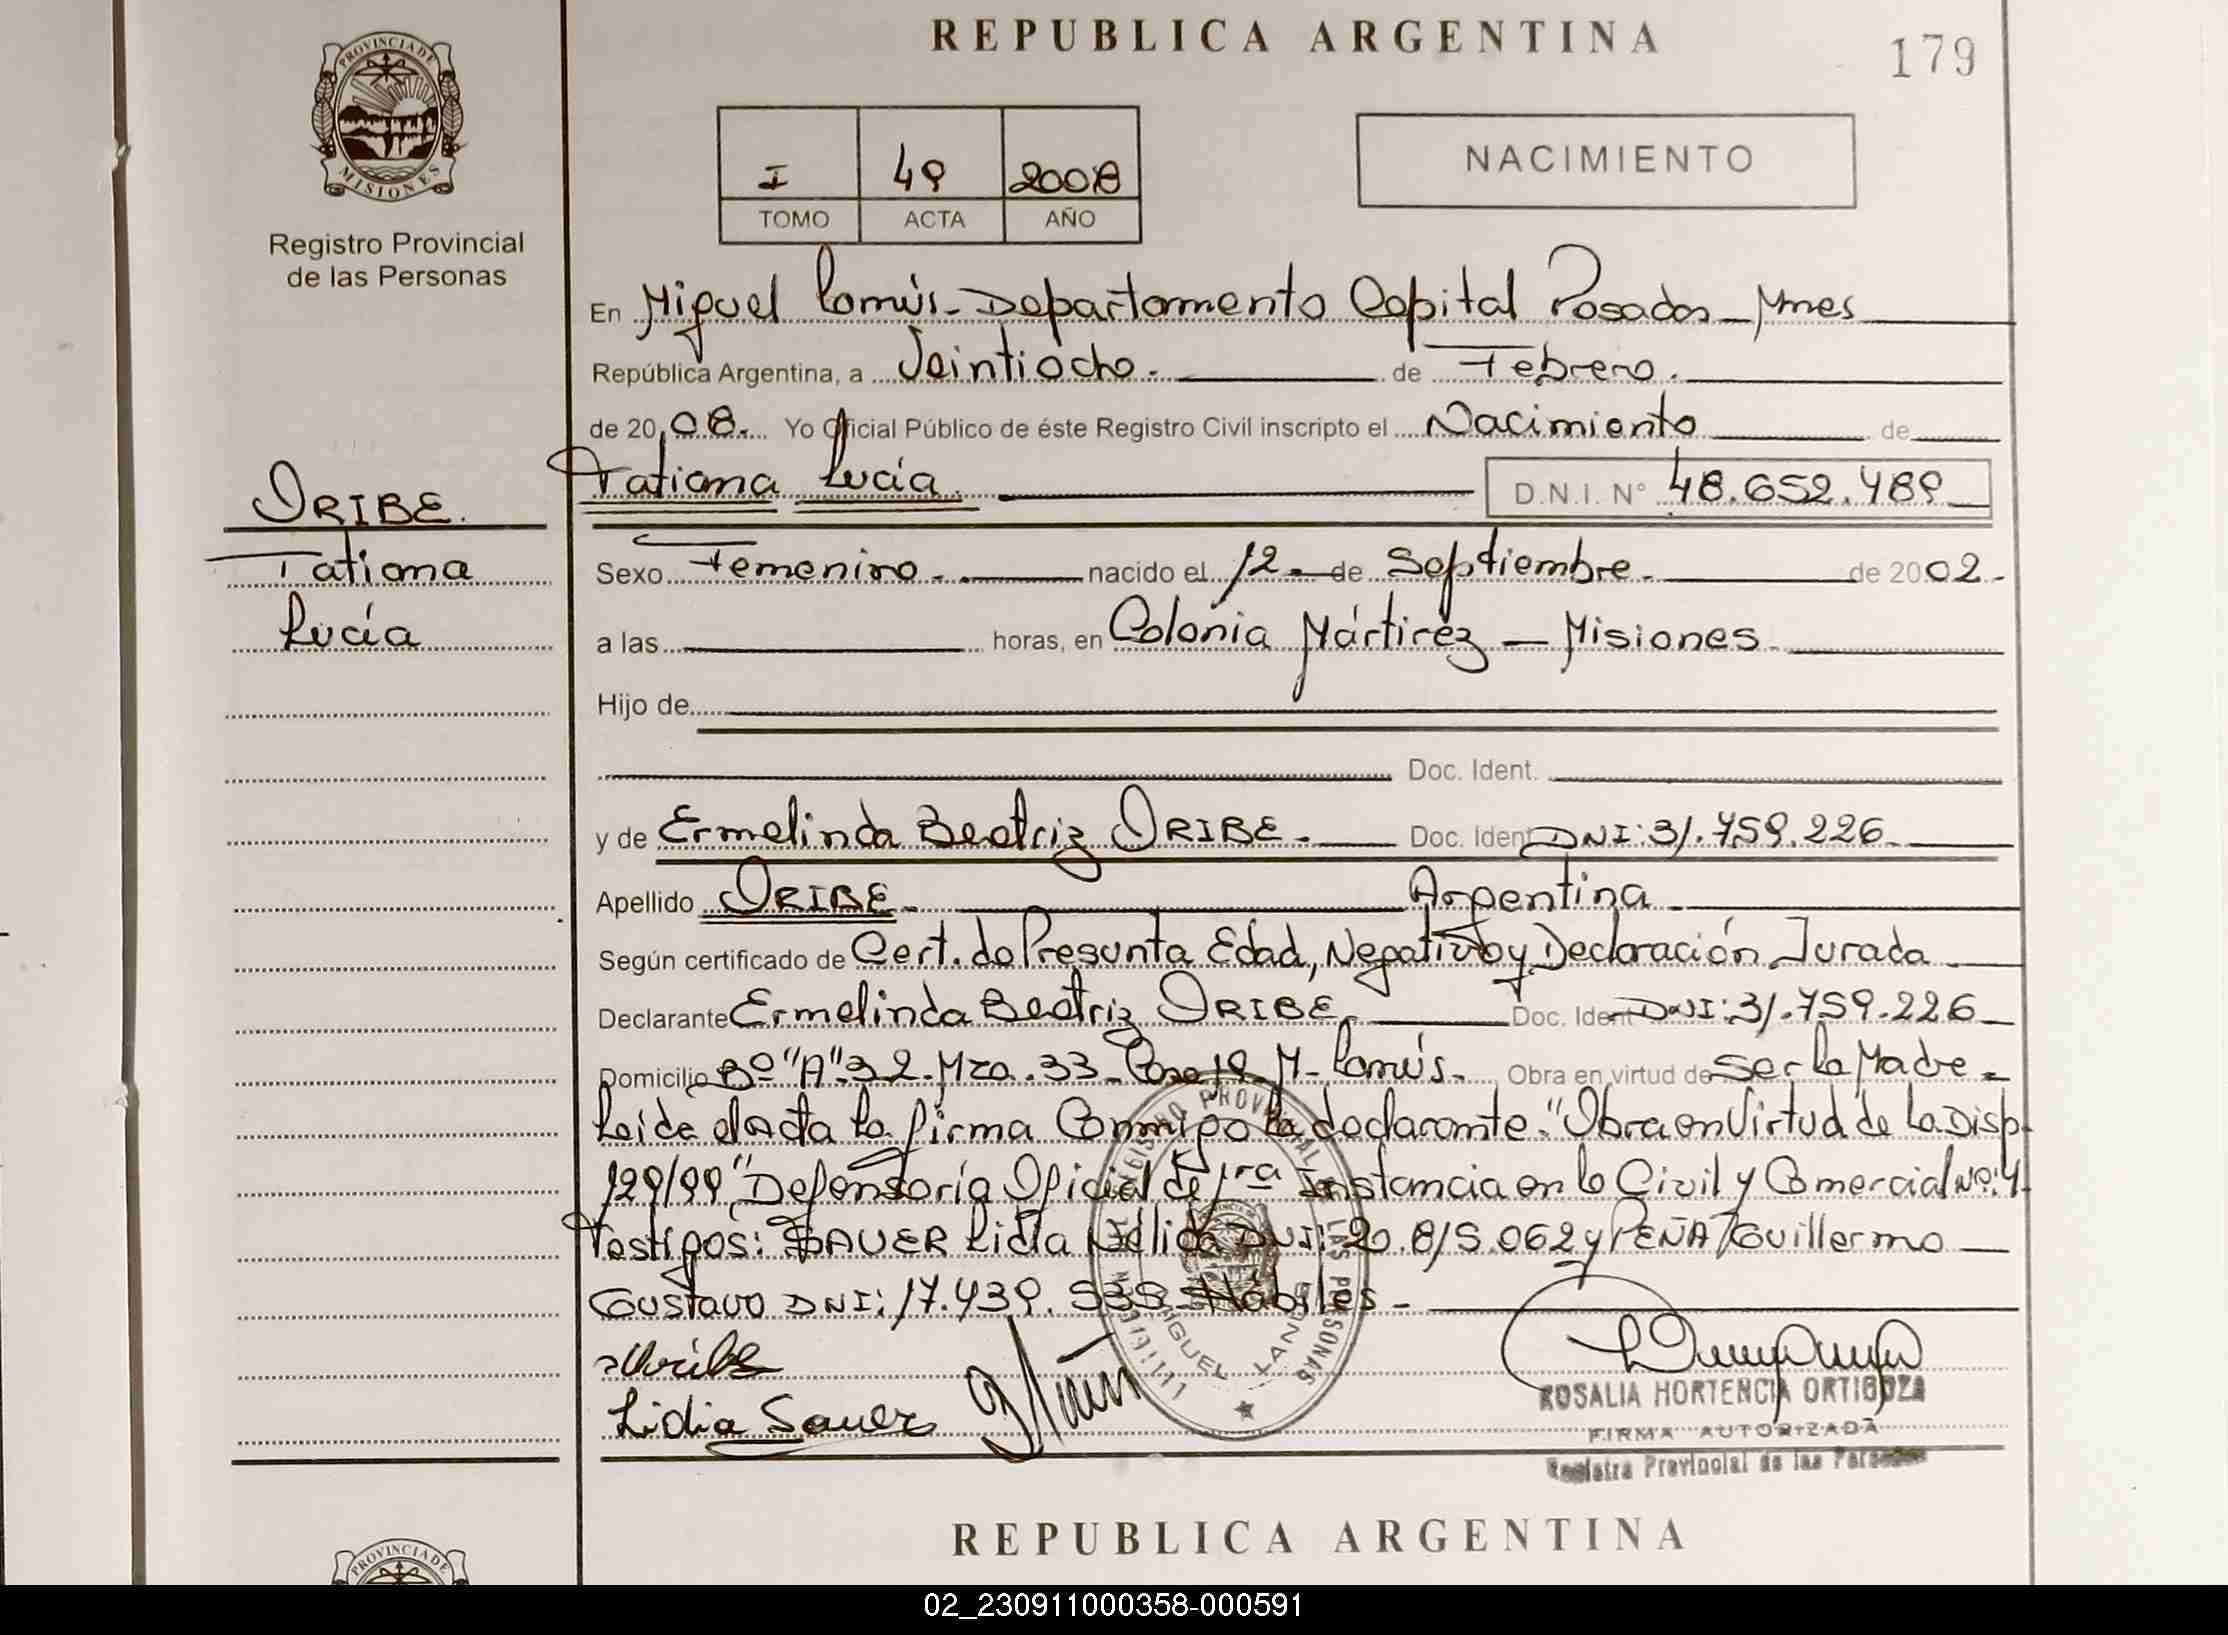 REPUBLICA ARGENTINA
179
PROVINCIA DE
MISIONES
Registro Provincial
de las Personas
I 49 2008
TOMO ACTA AÑO
NACIMIENTO
En Miguel Lanús - Departamento Capital Posadas - Mnes
República Argentina, a Veintiocho. de Febrero.
de 2008. Yo Oficial Público de éste Registro Civil inscripto el Nacimiento de
IRIBE.
Tatiana
Lucía
Tatiana Lucía D.N.I. N° 48.652.489
Sexo Femenino. nacido el 12 de Septiembre. de 2002.
a las horas, en Colonia Mártirez - Misiones.
Hijo de
Doc. Ident.
y de Ermelinda Beatriz IRIBE. Doc. Ident DNI: 31.759.226
Apellido IRIBE. Argentina
Según certificado de Cert. de Presunta Edad, Negativo y Declaración Jurada
Declarante Ermelinda Beatriz IRIBE. Doc. Ident DNI: 31.759.226
Domicilio Bº "A" 32. Mza. 33 Casa 19 M. Lanús. Obra en virtud de Ser la Madre
Leide el Acta la firma Conmigo la declarante. "Obra en Virtud de la Disp.
129/99" Defensoría Oficial de 1ra Instancia en lo Civil y Comercial Nº: 4.
Testigos: SAUER Lidia Nélida DNI: 20.815.062 y PEÑA Guillermo
Gustavo DNI: 17.439.535 Hábiles -
REGISTRO PROVINCIAL DE LAS PERSONAS
MIGUEL LANUS
Iribe
Lidia Sauer
ROSALIA HORTENCIA ORTIGOZA
FIRMA AUTORIZADA
Registro Provincial de las Personas
REPUBLICA ARGENTINA
PROVINCIA DE
02_230911000358-000591